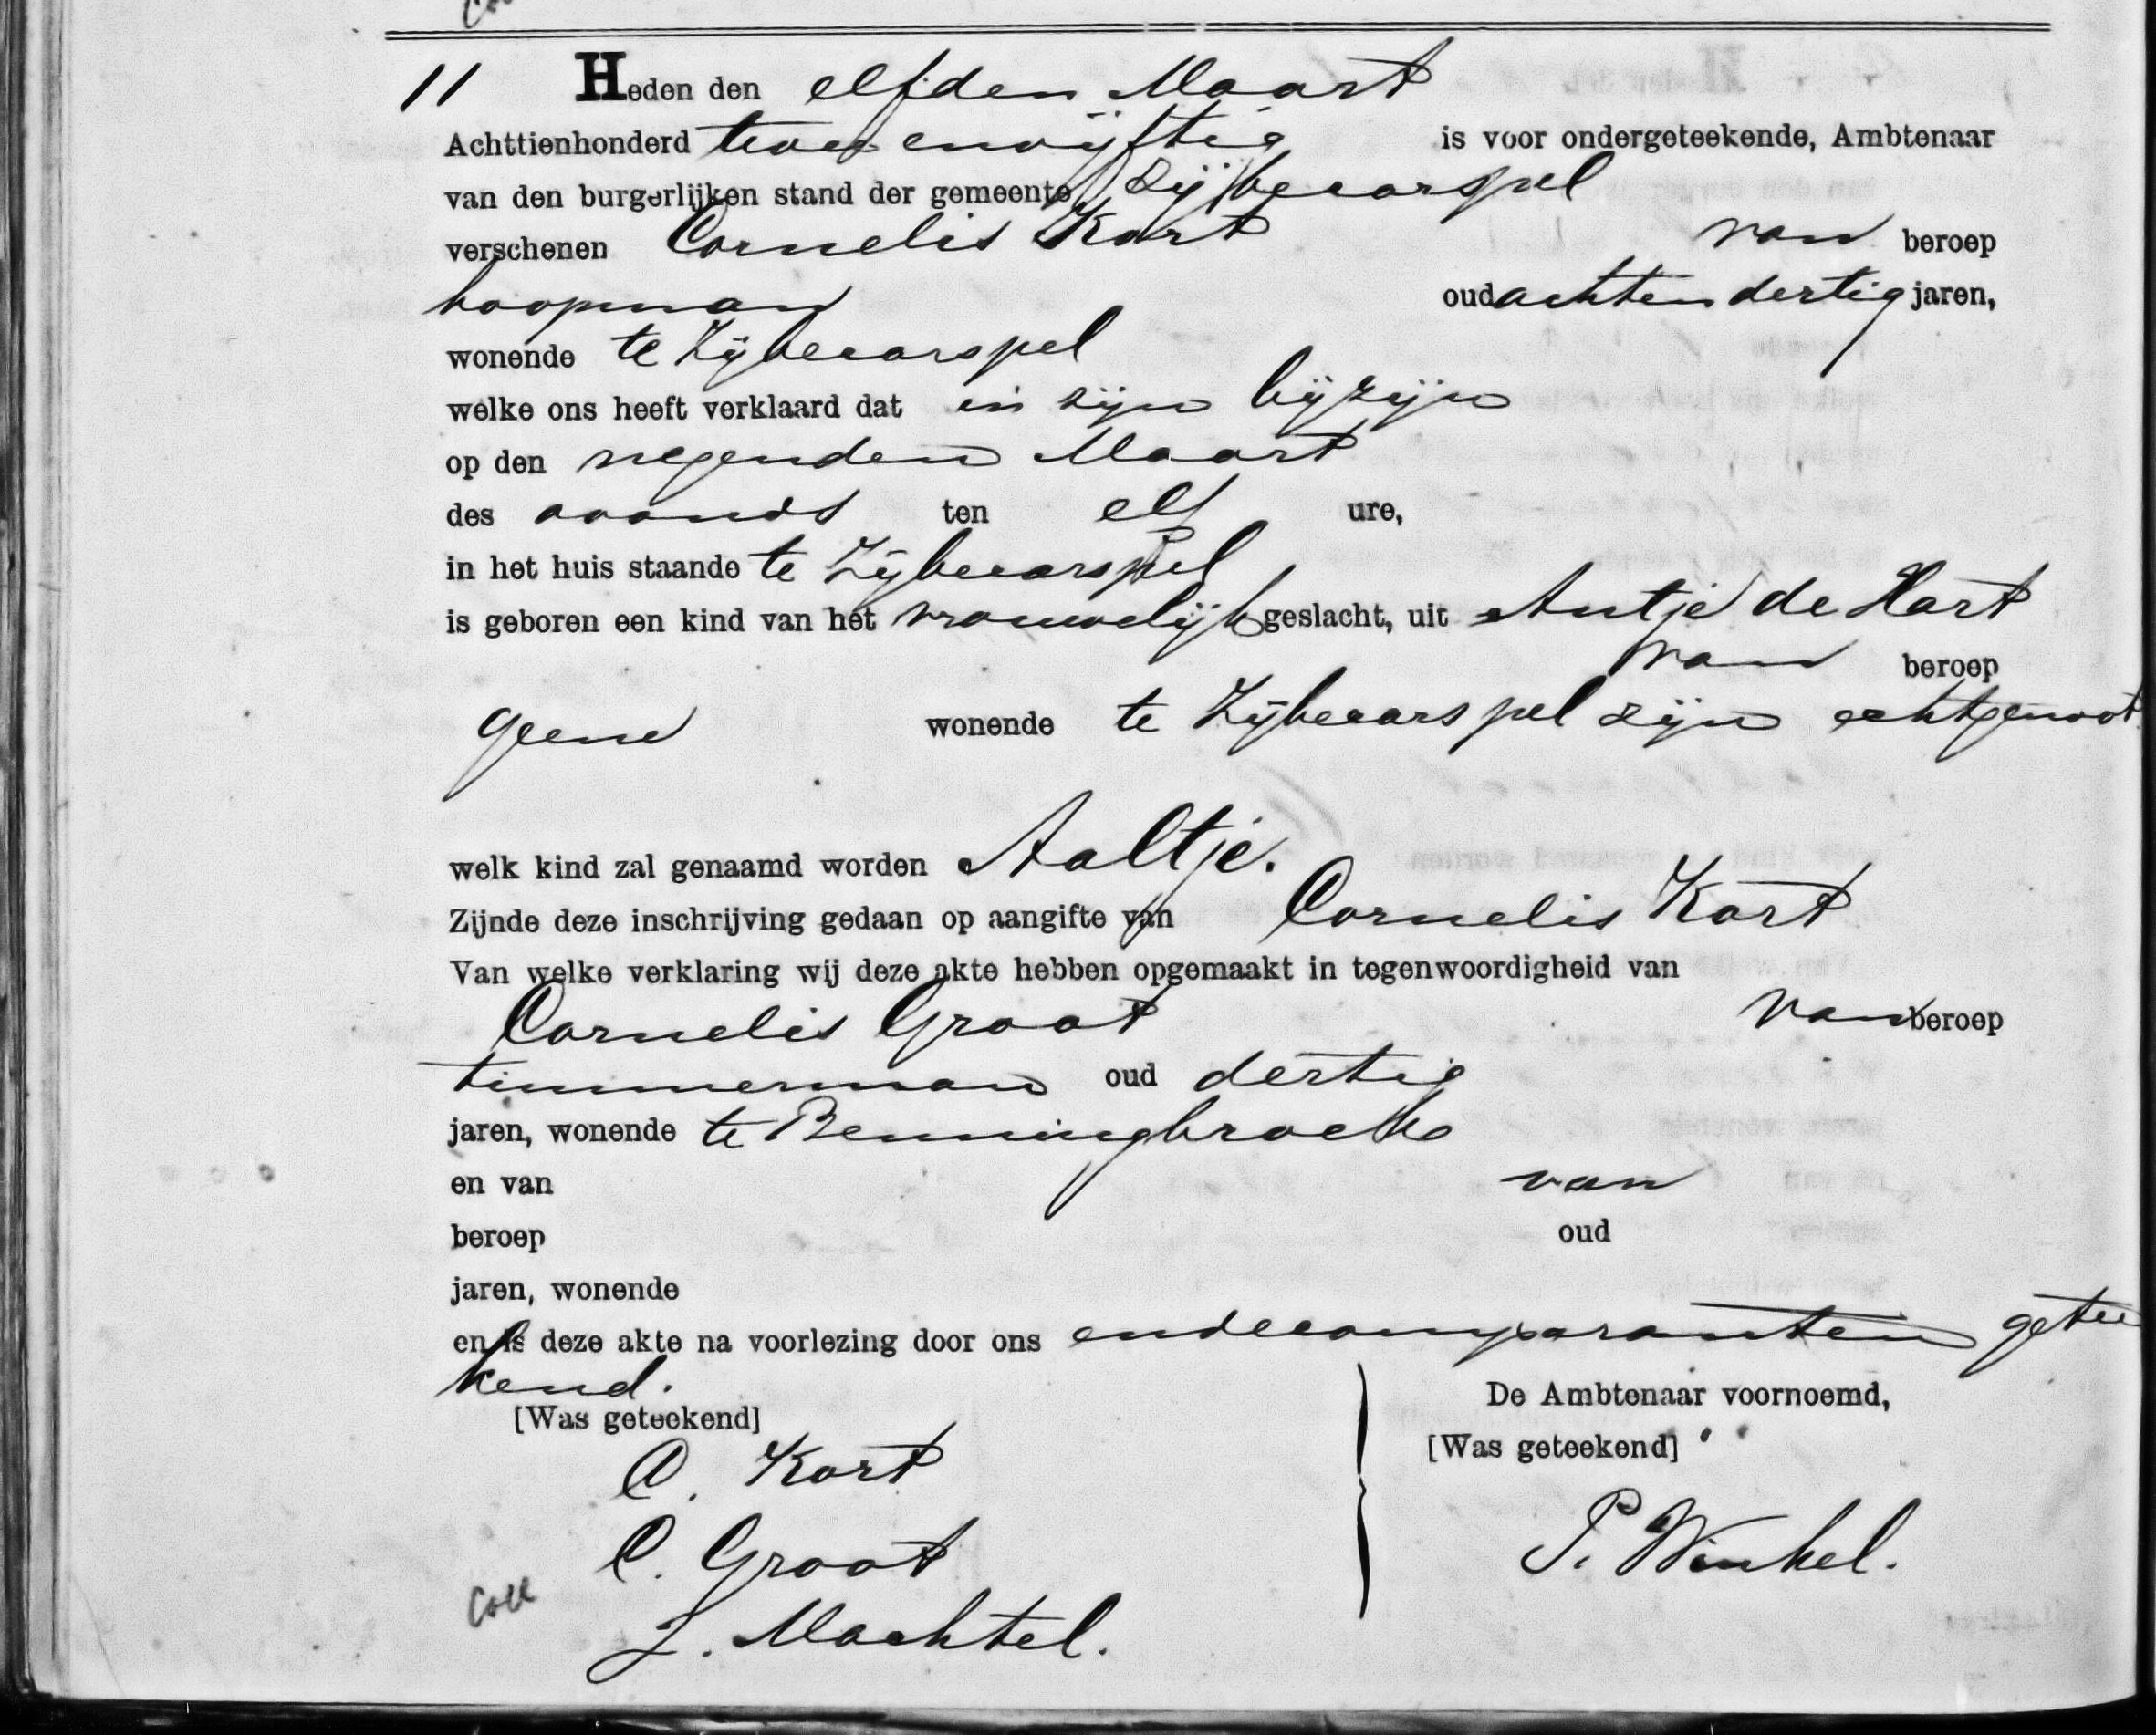 11 Heden den elfden Maart
Achttienhonderd twee en vijftig is voor ondergeteekende, Ambtenaar
van den burgerlijken stand der gemeente Zijbecarspel
verschenen Cornelis Kort van beroep
koopman oud acht en dertig jaren,
wonende te Zijbecarspel
welke ons heeft verklaard dat in zijn bijzijn
op den negenden Maart
des avonds ten elf ure,
in het huis staande te Zijbecarspel
is geboren een kind van het vrouwelijk geslacht, uit Antje de Hart
van beroep
geene wonende te Zijbecarspel zijn echtgenoot
welk kind zal genaamd worden Aaltje.
Zijnde deze inschrijving gedaan op aangifte van Cornelis Kort
Van welke verklaring wij deze akte hebben opgemaakt in tegenwoordigheid van
Cornelis Groot van beroep
timmerman oud dertig
jaren, wonende te Benningbroek
en van van
beroep oud
jaren, wonende
en is deze akte na voorlezing door ons en de comparanten getee
kend.
De Ambtenaar voornoemd,
[Was geteekend] [Was geteekend]
C. Kort
P. Winkel.
C. Groot
Coll
Z. Machtel.